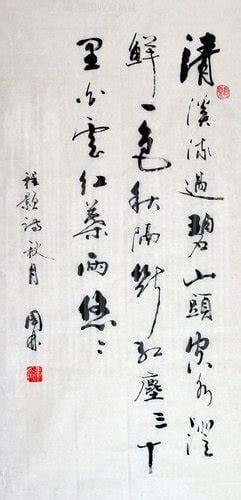 清溪流過碧山頭空水澄
鮮一色秋隔斷紅塵三十
里白雲紅葉兩悠々
程顥詩秋月